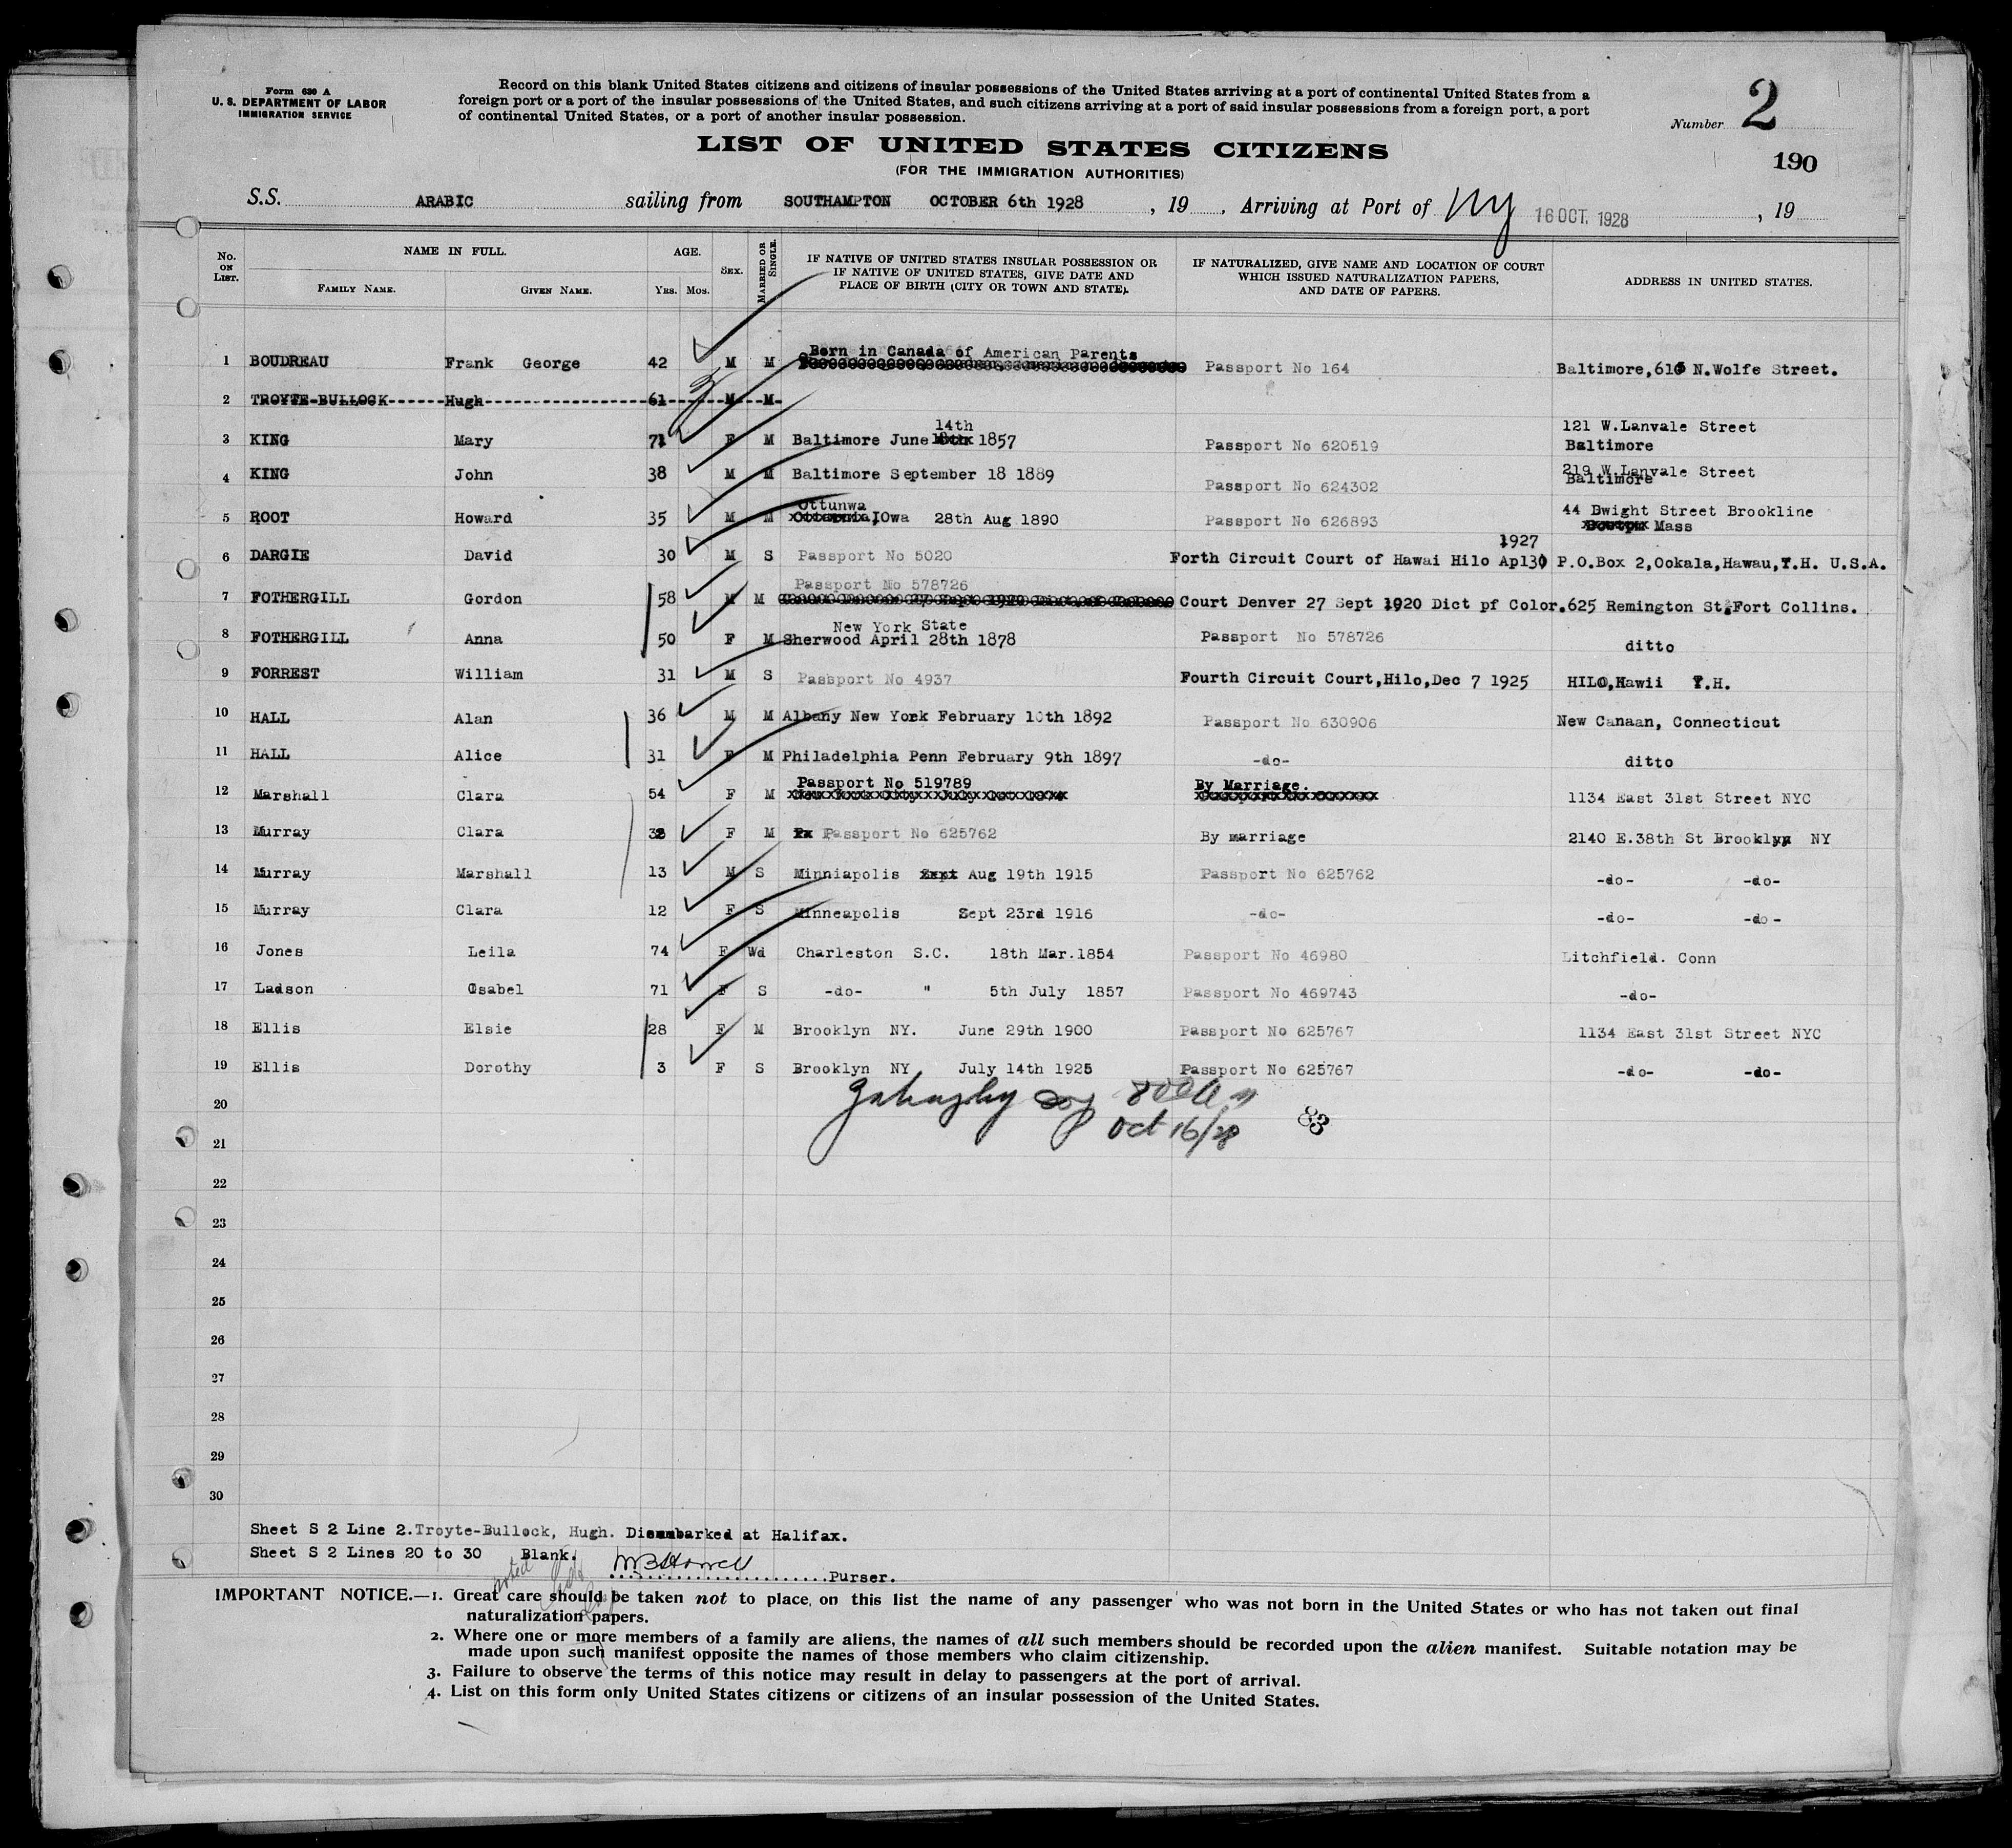 Form 630 A
U. S. DEPARTMENT OF LABOR
IMMIGRATION SERVICE
Record on this blank United States citizens and citizens of insular possessions of the United States arriving at a port of continental United States from a
foreign port or a port of the insular possessions of the United States, and such citizens arriving at a port of said insular possessions from a foreign port, a port
of continental United States, or a port of another insular possession.
Number 2
LIST OF UNITED STATES CITIZENS
(FOR THE IMMIGRATION AUTHORITIES)
190
S.S. ARABIC sailing from SOUTHAMPTON OCTOBER 6th 1928, 19 , Arriving at Port of NY 16 OCT. 1928, 19
No. ON LIST. NAME IN FULL. FAMILY NAME. GIVEN NAME. AGE. Yrs. Mos. SEX. MARRIED OR SINGLE.
IF NATIVE OF UNITED STATES INSULAR POSSESSION OR
IF NATIVE OF UNITED STATES, GIVE DATE AND
PLACE OF BIRTH (CITY OR TOWN AND STATE).
IF NATURALIZED, GIVE NAME AND LOCATION OF COURT
WHICH ISSUED NATURALIZATION PAPERS,
AND DATE OF PAPERS.
ADDRESS IN UNITED STATES.
1 BOUDREAU Frank George 42 M M Born in Canada of American Parents Passport No 164 Baltimore, N.Wolfe Street.
2 TROYTE-BULLOCK Hugh 61 M M
3 KING Mary 71 F M Baltimore June 14th 1857 Passport No 620519 121 W.Lanvale Street
Baltimore
4 KING John 38 M M Baltimore September 18 1889 Passport No 624302 219 W.Lanvale Street
Baltimore
5 ROOT Howard 35 M M Ottunwa, IOwa 28th Aug 1890 Passport No 626893 44 Dwight Street Brookline
Mass
6 DARGIE David 30 M S Passport No 5020 Forth Circuit Court of Hawai Hilo Apl30 1927 P.O.Box 2,Ookala,Hawau,T.H. U.S.A.
7 FOTHERGILL Gordon 58 M M Passport No 578726 Court Denver 27 Sept 1920 Dict pf Color. 625 Remington St,Fort Collins.
8 FOTHERGILL Anna 50 F M New York State
Sherwood April 28th 1878 Passport No 578726 ditto
9 FORREST William 31 M S Passport No 4937 Fourth Circuit Court,Hilo,Dec 7 1925 HILO,Hawii T.H.
10 HALL Alan 36 M M Albany New York February 10th 1892 Passport No 630906 New Canaan, Connecticut
11 HALL Alice 31 F M Philadelphia Penn February 9th 1897 -do- ditto
12 Marshall Clara 54 F M Passport No 519789 By Marriage. 1134 East 31st Street NYC
13 Murray Clara F M Passport No 625762 By marriage 2140 E.38th St Brooklyn NY
14 Murray Marshall 13 M S Minniapolis Aug 19th 1915 Passport No 625762 -do- -do-
15 Murray Clara 12 F S Minneapolis Sept 23rd 1916 -do- -do- -do-
16 Jones Leila 74 F Wd Charleston S.C. 18th Mar.1854 Passport No 46980 Litchfield. Conn
17 Ladson Isabel 71 F S -do- " 5th July 1857 Passport No 469743 -do-
18 Ellis Elsie 28 F M Brooklyn NY. June 29th 1900 Passport No 625767 1134 East 31st Street NYC
19 Ellis Dorothy 3 F S Brooklyn NY July 14th 1925 Passport No 625767 -do- -do-
20
Oct 16/28 83
21
22
23
24
25
26
27
28
29
30
Sheet S 2 Line 2.Troyte-Bullock, Hugh. Disembarked at Halifax.
Sheet S 2 Lines 20 to 30 Blank.
Purser.
IMPORTANT NOTICE.—1. Great care should be taken not to place on this list the name of any passenger who was not born in the United States or who has not taken out final
naturalization papers.
2. Where one or more members of a family are aliens, the names of all such members should be recorded upon the alien manifest. Suitable notation may be
made upon such manifest opposite the names of those members who claim citizenship.
3. Failure to observe the terms of this notice may result in delay to passengers at the port of arrival.
4. List on this form only United States citizens or citizens of an insular possession of the United States.